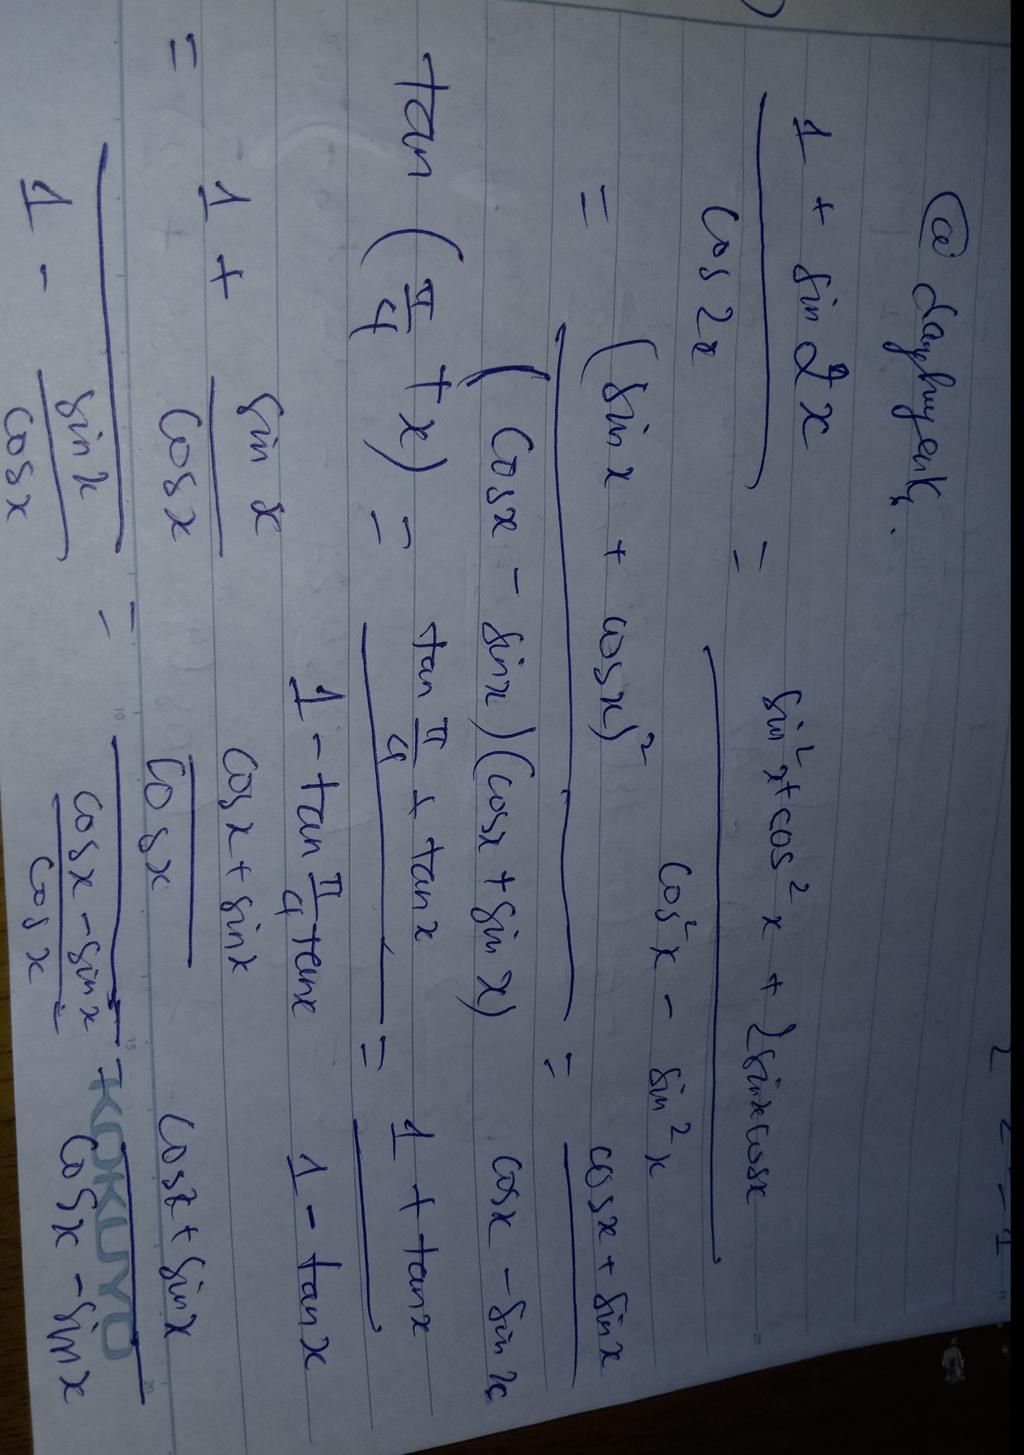 @ dayhuyenk.
1 + sin 2x / cos 2x = sin²x + cos²x + 2sinxcosx / cos²x - sin²x
= (sinx + cosx)² / (cosx - sinx)(cosx + sinx) = cosx + sinx / cosx - sinx
tan (π/4 + x) = tan π/4 + tanx / 1 - tan π/4 tanx = 1 + tanx / 1 - tanx
= 1 + sinx/cosx / 1 - sinx/cosx = cosx + sinx/cosx / cosx - sinx/cosx = cosx + sinx / cosx - sinx
KOKUYO